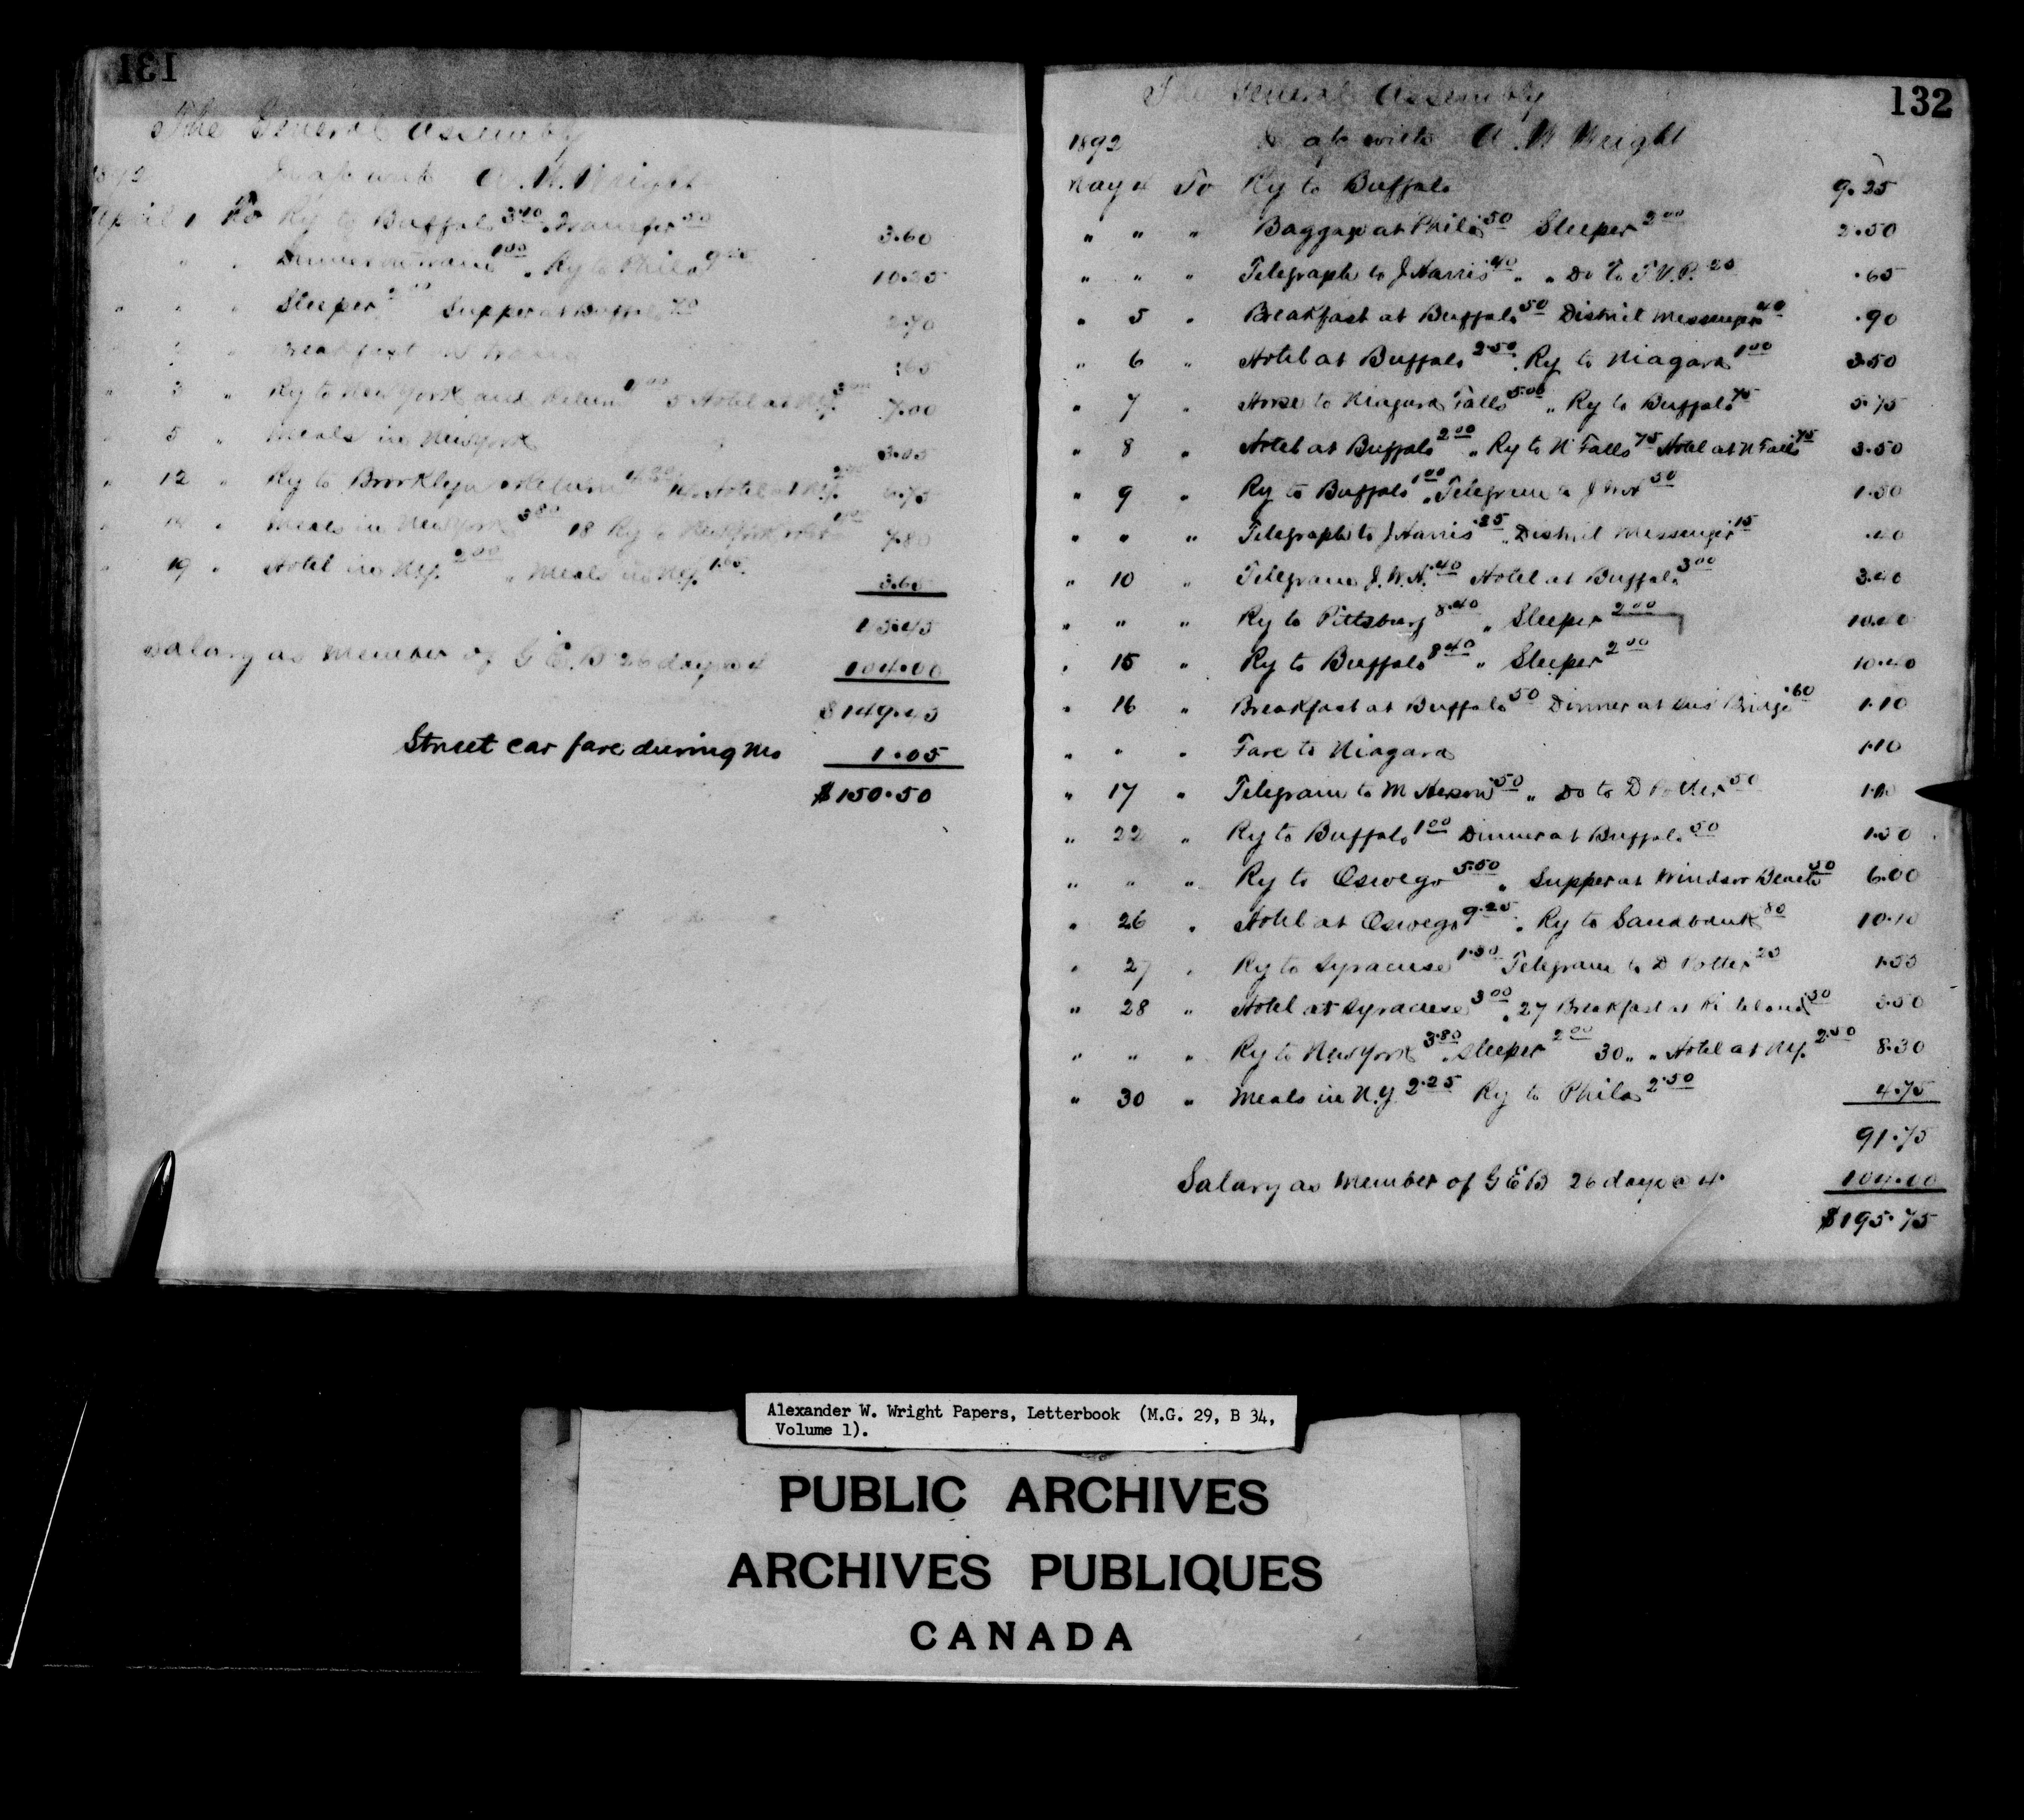 131
The General Assembly
1892 In a/c with A. W. Wright
April 1 To Ry to Buffalo Transfer 50 3.60
" " " Dinner on train 1.00 " Ry to Phila 10.25
" " " Sleeper Supper at Buffalo 70 2.70
" " Breakfast on train .65
" 3 " Ry to New York and Return 5 Hotel at N.Y. 7.00
" 5 " Meals in New York 3.05
" 12 " Ry to Brooklyn & Return Hotel at N.Y. 6.75
" " Meals in New York 3.80 18 Ry to New York 7.80
" 19 " Hotel in N.Y. 2.00 " Meals in N.Y. 1.60 3.60
45.45
Salary as Member of G E B 26 days @ 4 104.00
$149.45
Street car fare during Mo 1.05
$150.50
132
The General Assembly
1892 In a/c with A. W. Wright
May 4 To Ry to Buffalo 9.25
" " " Baggage at Phila 50 Sleeper 2.00 2.50
" " " Telegraph to J Harris .40 " " Do to T.V.P. 25 .65
" 5 " Breakfast at Buffalo 50 District Messenger 40 .90
" 6 " Hotel at Buffalo 2.50 " Ry to Niagara 1.00 3.50
" 7 " Horse to Niagara Falls 5.00 " Ry to Buffalo 75 5.75
" 8 " Hotel at Buffalo 2.00 " Ry to N Falls 75 Hotel at N Falls 75 3.50
" 9 " Ry to Buffalo 1.00 " Telegram to 50 1.50
" " " Telegraph to J Harris .25 " District Messenger 15 .40
" 10 " Telegram J.W.H. .40 Hotel at Buffalo 3.00 3.40
" " " Ry to Pittsburg 8.40 " Sleeper 2.00 10.40
" 15 " Ry to Buffalo 8.40 " Sleeper 2.00 10.40
" 16 " Breakfast at Buffalo 50 Dinner at Sus Bridge .60 1.10
" " " Fare to Niagara 1.10
" 17 " Telegram to 50 " Do to D Potter 50 1.00
" 22 " Ry to Buffalo 1.00 Dinner at Buffalo 50 1.50
" " " Ry to Oswego 5.50 " Supper at Windsor Beach 50 6.00
" 26 " Hotel at Oswego 9.25 " Ry to Sandbank 80 10.10
" 27 " Ry to Syracuse 1.30 Telegram to D Potter 25 1.55
" 28 " Hotel at Syracuse 3.00 " 27 Breakfast at Richland 50 3.50
" " " Ry to New York 3.80 " Sleeper 2.00 30 " " Hotel at N.Y. 2.50 8.30
" 30 " Meals in N.Y. 2.25 Ry to Phila 2.50 4.75
91.75
Salary as Member of G E B 26 days @ 4 104.00
$195.75
Alexander W. Wright Papers, Letterbook (M.G. 29, B 34,
Volume 1).
PUBLIC ARCHIVES
ARCHIVES PUBLIQUES
CANADA